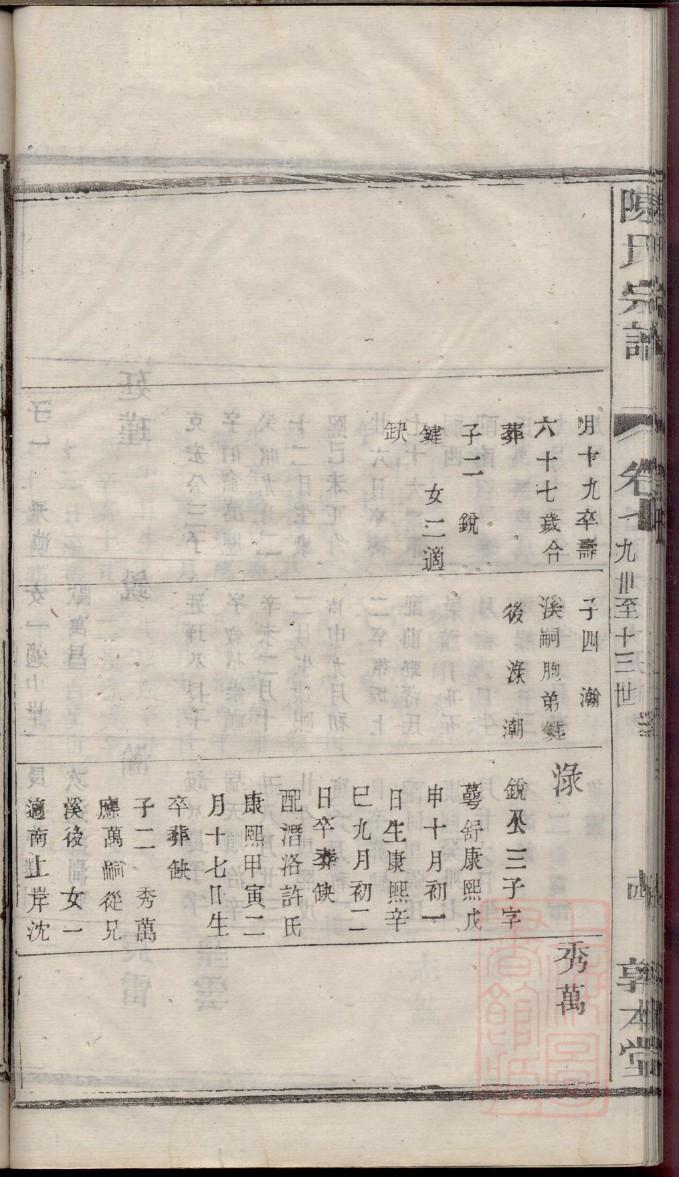 陳氏宗譜
卷七
九世至十三世
敦本堂
月十九卒壽
六十七歲合
葬
子二　銳
鍵　女二適
缺
子四　瀚
溪嗣胞弟鍵
後　淥　潮
淥
銳公三子字
萼舒康熙戊
申十月初一
日生康熙辛
巳九月初二
日卒葬缺
配潛洛許氏
康熙甲寅二
月十七日生
卒葬缺
子二　秀萬
應萬嗣從兄
溪後　女一
適南上岸沈
秀萬